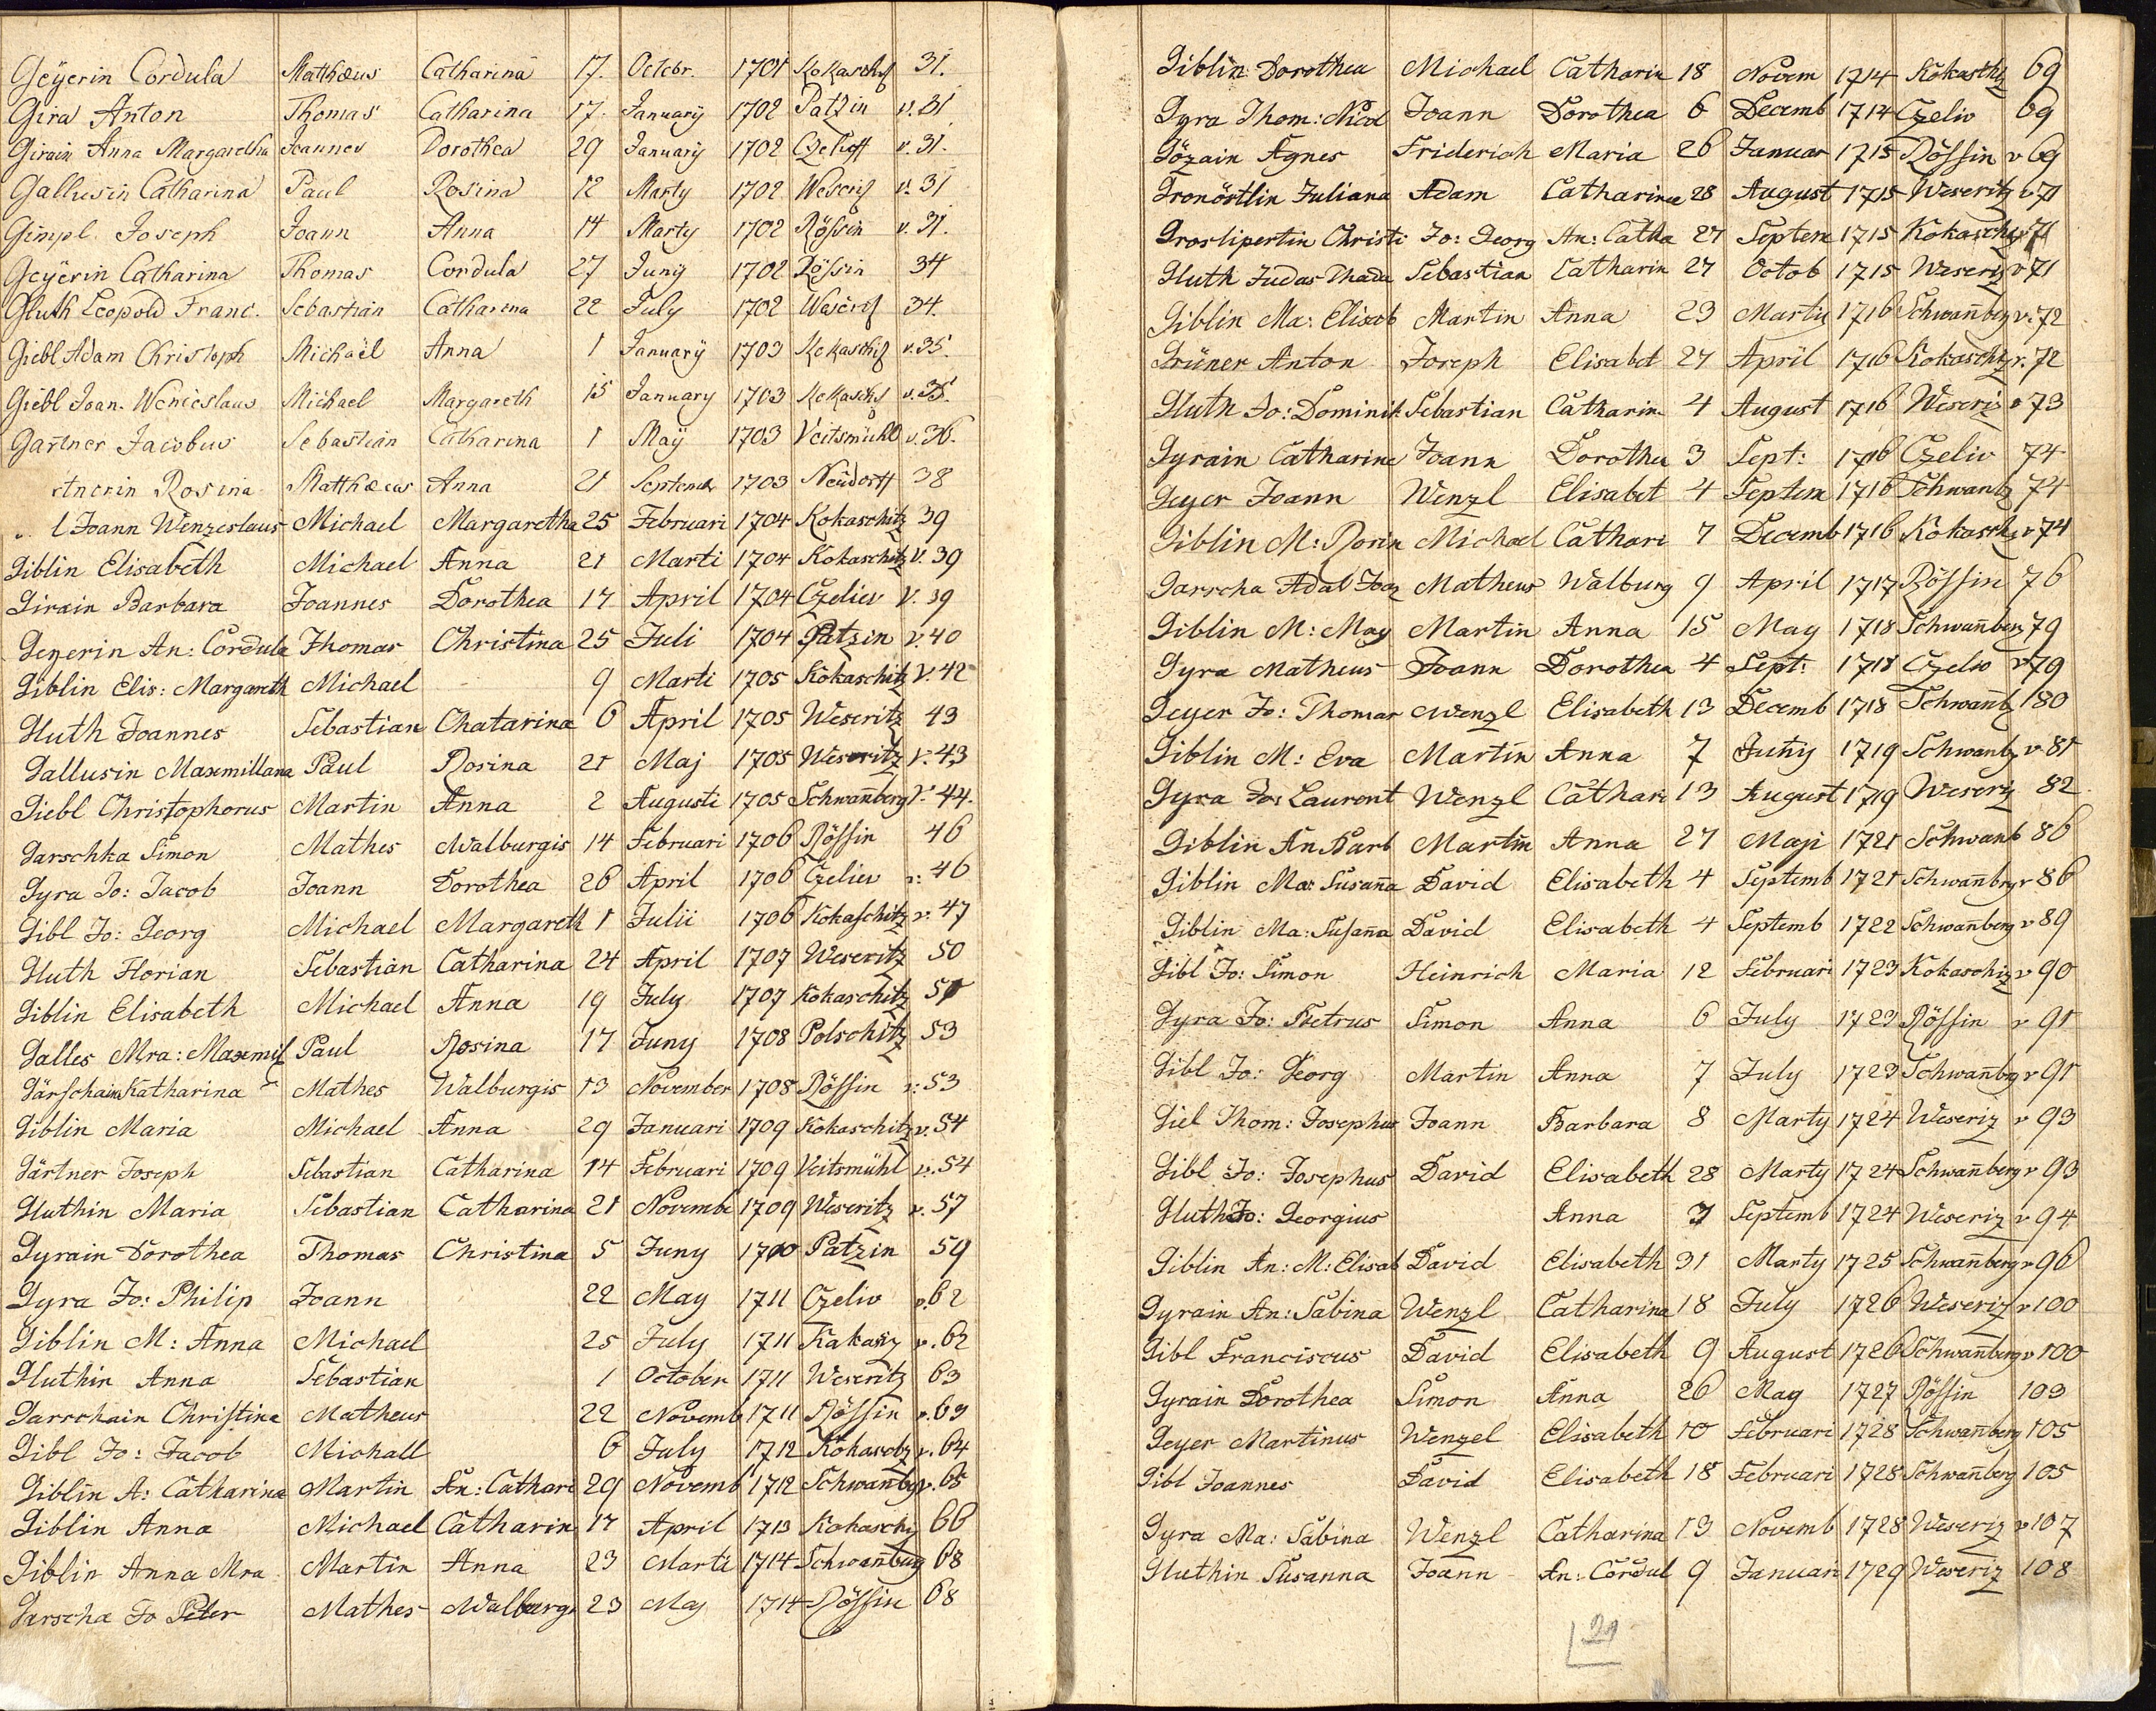 Geÿerin Cordula Matthæus Catharina 17. Octobr. 1701 Kokaschiz 31.
Gira Anton Thomas Catharina 17. Januarÿ 1702 Patzin v. 31
Girain Anna Margaretha Joannes Dorothea 29 Januarÿ 1702 Czelioff v. 31.
Gallusin Catharina Paul Rosina 12 Marty 1702 Weseriz v. 31
Gimpl Joseph Joann Anna 14 Marty 1702 Rössin v. 31.
Geÿerin Catharina Thomas Cordula 27 Junÿ 1702 Rössin 34
Gluth Leopold Franc. Sebastian Catharina 22 July 1702 Weseriz 34.
Giebl Adam Christoph Michaël Anna 1 Januarÿ 1703 Kokaschiz v. 35.
Giebl Joan. Wenceslaus Michael Margareth 15 January 1703 Kokaschz v. 35.
Gartner Jacobus Sebastian Catharina 1 Maÿ 1703 Veitsmühl v. 36.
rtnerin Rosina Matthæus Anna 21 Septemb 1703 Neüdorff 38
l Joann Wenzeslaus Michael Margaretha 25 Februari 1704 Kokaschitz 39
Giblin Elisabeth Michael Anna 21 Marti 1704 Kokaschitz V. 39
Girain Barbara Joannes Dorothea 17 April 1704 Czeliev V. 39
Geyerin An: Cordula Thomas Christina 25 Juli 1704 Patzin v. 40
Giblin Elis: Margareth Michael 9 Marti 1705 Kokaschitz V. 42
Gluth Joannes Sebastian Chatarina 6 April 1705 Weseritz 43
Gallusin Maxmillana Paul Rosina 21 Maj 1705 Weseritz V. 43
Giebl Christophorus Martin Anna 2 Augusti 1705 Schwan̄berg V. 44.
Garschka Simon Mathes Walburgis 14 Februari 1706 Rössin 46
Gyra Jo: Jacob Joann Dorothea 26 April 1706 Czeliev v: 46
Gibl Jo: Georg Michael Margareth 1 Julii 1706 Kokaschitz v. 47
Gluth Florian Sebastian Catharina 24 April 1707 Weseritz 50
Giblin Elisabeth Michael Anna 19 July 1707 Kokaschitz 51
Galles Mra: Maxemil Paul Rosina 17 Juny 1708 Polschitz 53
Gärschain Katharina Mathes Walburgis 13 November 1708 Rössin v: 53
Giblin Maria Michael Anna 29 Januari 1709 Kokaschitz v. 54
Gärtner Joseph Sebastian Catharina 14 Februari 1709 Veitsmühl v. 54
Gluthin Maria Sebastian Catharina 21 Novembe 1709 Weseritz v. 57
Gyrain Dorothea Thomas Christina 5 Juny 1710 Patzin 59
Gyra Jo: Philip Joann 22 May 1711 Czeliv v. 62
Giblin M: Anna Michael 25 July 1711 Kakasiz v. 62
Gluthin Anna Sebastian 1 October 1711 Weseritz 63
Garschain Christina Matheus 22 Novemb 1711 Rössin v. 63
Gibl Jo: Jacob Michall 6 July 1712 Kokaschz v. 64
Giblin A: Catharina Martin An: Cathari 29 Novemb 1712 Schwan̄bg v. 65
Giblin Anna Michael Catharin 17 April 1713 Kokaschiz 66
Giblin Anna Mra Martin Anna 23 Marti 1714 Schwan̄burg 68
Garscha Jo Peter Mathes Walburg 23 Maj 1714 Rössin 68
Giblin Dorothea Michael Catharin 18 Novem 1714 Kokaschz 69
Gyra Thom: Nicol Joann Dorothea 6 Decemb 1714 Czeliv 69
Gözain Agnes Friderich Maria 26 Januar 1715 Rössin v 69
Gronöstlin Juliana Adam Catharina 28 August 1715 Weseritz v 71
Groslipertin Christi Jo: Georg An: Catha 27 Septem 1715 Kokaschz v 71
Gluth Judas Thada Sebastian Catharin 27 Octob 1715 Weseriz v 71
Giblin Ma: Elisab Martin Anna 23 Marty 1716 Schwan̄berg v. 72
Grüner Anton Joseph Elisabet 27 April 1716 Kokaschz v. 72
Gluth Jo: Dominik Sebastian Catharin 4 August 1716 Weseriz v 73
Gyrain Catharine Joann Dorothea 3 Sept: 1716 Czeliv 74
Geyer Joann Wenzl Elisabet 4 Septem 1716 Schwanb 74
Giblin M: Rosin Michael Cathari 7 Decemb 1716 Kokaschz v 74
Garscha Adal Joan Matheus Walburg 9 April 1717 Rössin 76
Giblin M: May Martin Anna 15 May 1718 Schwan̄ber 79
Gyra Matheus Joann Dorothea 4 Sept: 1718 Czelio v 79
Geyer Jo: Thomas Wenzl Elisabeth 13 Decemb 1718 Schwan̄b 180
Giblin M: Eva Martin Anna 7 Juny 1719 Schwanb v 81
Gyra Jo: Laurent Wenzl Cathari 13 August 1719 Weseriz 82
Giblin An Barb Martin Anna 27 Maji 1721 Schwanb 86
Giblin Ma: Susan̄a David Elisabeth 4 Septemb 1721 Schwan̄brg v 86
Giblin Ma: Susan̄a David Elisabeth 4 Septemb 1722 Schwan̄berg v 89
Gibl Jo: Simon Heinrich Maria 12 Februari 1723 Kokaschiz v 90
Gyra Jo: Petrus Simon Anna 6 July 1723 Rössin v 91
Gibl Jo: Georg Martin Anna 7 July 1723 Schwan̄brg v 91
Giel Thom: Josephus Joann Barbara 8 Marty 1724 Weseriz v 93
Gibl Jo: Josephus David Elisabeth 28 Marty 1724 Schwan̄berg v 93
Gluth Jo: Georgius Anna 7 Septemb 1724 Weseriz v 94
Giblin An: M: Elisab David Elisabeth 31 Marty 1725 Schwan̄berg v 96
Gyrain An: Sabina Wenzl Catharina 18 July 1726 Weseriz v 100
Gibl Franciscus David Elisabeth 9 August 1726 Schwan̄berg v 100
Gyrain Dorothea Simon Anna 26 May 1727 Rössin 103
Geyer Martinus Wenzel Elisabeth 10 Februari 1728 Schwan̄berg 105
Gibl Joannes David Elisabeth 18 Februari 1728 Schwan̄berg 105
Gyra Ma: Sabina Wenzl Catharina 13 Novemb 1728 Weseriz v 107
Gluthin Susanna Joann An: Cordul 9 Januari 1729 Weseriz 108
21